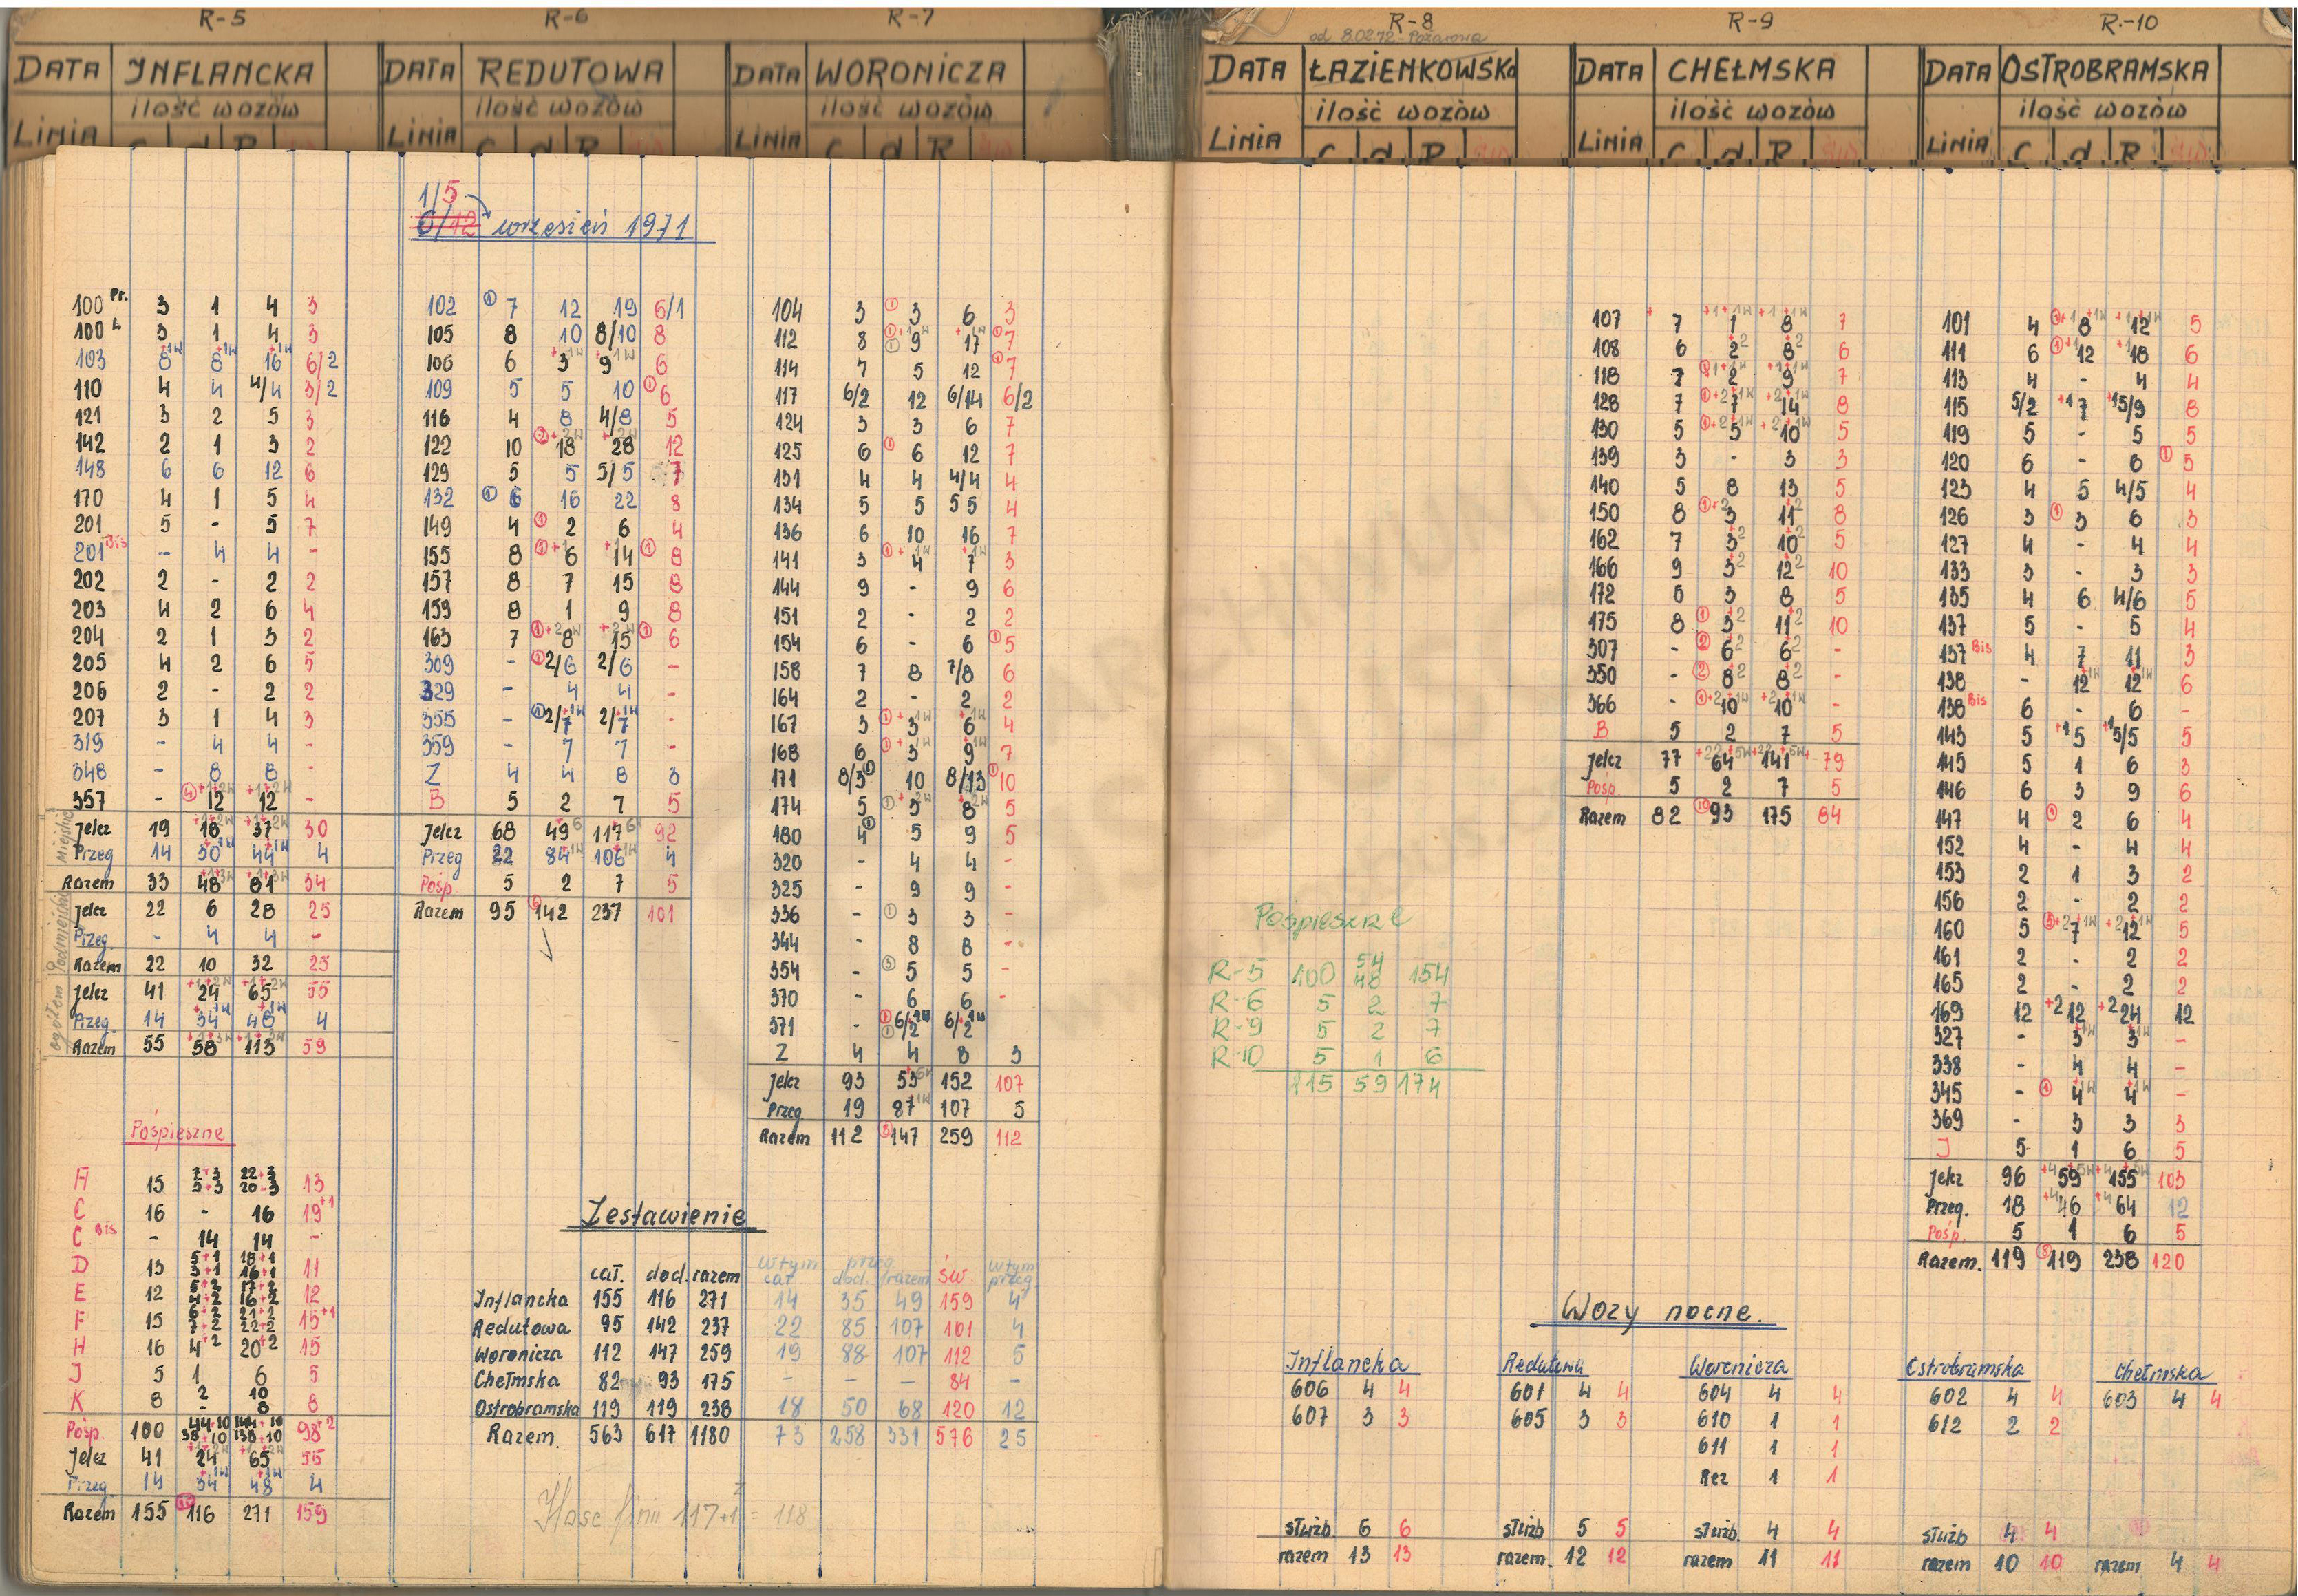 R-5 R-6 R-7 R-8 R-9 R-10
od 8.02.72 - Pożarowa
DATA INFLANCKA
ilość wozów
Linia C d R
DATA REDUTOWA
ilość wozów
Linia C d R
DATA WORONICZA
ilość wozów
Linia C d R
DATA ŁAZIENKOWSKA
ilość wozów
Linia C d R
DATA CHEŁMSKA
ilość wozów
Linia C d R
DATA OSTROBRAMSKA
ilość wozów
Linia C d R
1/5
6/12 wrzesień 1971
100 Pr. 3 1 4 3
100 L 3 1 4 3
103 8 8 16 6/2
110 4 4 4/4 3/2
121 3 2 5 3
142 2 1 3 2
148 6 6 12 6
170 4 1 5 4
201 5 - 5 7
201 Bis - 4 4 -
202 2 - 2 2
203 4 2 6 4
204 2 1 3 2
205 4 2 6 5
206 2 - 2 2
207 3 1 4 3
319 - 4 4 -
348 - 8 8 -
357 - 12 12 -
Miejskie
Jelcz 19 18 37 30
Przeg 14 30 44 4
Razem 33 48 81 34
Podmiejskie
Jelcz 22 6 28 25
Przeg. - 4 4 -
Razem 22 10 32 25
ogółem
Jelcz 41 24 65 55
Przeg. 14 34 48 4
Razem 55 58 113 59
Pośpieszne
A 15 13
C 16 - 16 19+1
C Bis - 14 14 -
D 13 5+1 18+1 11
3+1 16+1
E 12 5+2 17+2 12
4+2 16+2
F 15 6+2 21+2 15+1
7+2 22+2
H 16 4+2 20+2 15
J 5 1 6 5
K 8 2 10 8
- 8
Pośp. 100 44+10 144+10 98+2
38+10 138+10
Jelcz 41 24 65 55
Przeg. 14 34 48 4
Razem 155 116 271 159
102 7 12 19 6/1
105 8 10 8/10 8
106 6 3 9 6
109 5 5 10 6
116 4 8 4/8 5
122 10 18 28 12
129 5 5 5/5 7
132 6 16 22 8
149 4 2 6 4
155 8 6 14 8
157 8 7 15 8
159 8 1 9 8
163 7 8 15 6
309 - 2/6 2/6 -
329 - 4 4 -
355 - 2/7 2/7 -
359 - 7 7 -
Z 4 4 8 3
B 5 2 7 5
Jelcz 68 49 117 92
Przeg 22 84 106 4
Pośp. 5 2 7 5
Razem 95 142 237 101
104 3 3 6 3
112 8 9 17 7
114 7 5 12 7
117 6/2 12 6/14 6/2
124 3 3 6 7
125 6 6 12 7
131 4 4 4/4 4
134 5 5 5 5 4
136 6 10 16 7
141 3 4 7 3
144 9 - 9 6
151 2 - 2 2
154 6 - 6 5
158 7 8 7/8 6
164 2 - 2 2
167 3 3 6 4
168 6 3 9 7
171 8/3 10 8/13 10
174 5 3 8 5
180 4 5 9 5
320 - 4 4 -
325 - 9 9 -
336 - 3 3 -
344 - 8 8 -
354 - 5 5 -
370 - 6 6 -
371 - 6/2 6/2
Z 4 4 8 3
Jelcz 93 53 152 107
Przeg. 19 87 107 5
Razem 112 147 259 112
Zestawienie
cał. dod. razem w tym przeg św. w tym
cał. dod. razem przeg.
Inflancka 155 116 271 14 35 49 159 4
Redutowa 95 142 237 22 85 107 101 4
Woronicza 112 147 259 19 88 107 112 5
Chełmska 82 93 175 - - - 84 -
Ostrobramska 119 119 238 18 50 68 120 12
Razem. 563 617 1180 73 258 331 576 25
Ilość linii 117+1 = 118
Pośpieszne
R-5 100 54 154
48
R-6 5 2 7
R-9 5 2 7
R-10 5 1 6
115 59 174
107 7 1 8 7
108 6 2 8 6
118 7 2 9 7
128 7 7 14 8
130 5 5 10 5
139 3 - 3 3
140 5 8 13 5
150 8 3 11 8
162 7 3 10 5
166 9 3 12 10
172 5 3 8 5
175 8 3 11 10
307 - 6 6 -
350 - 8 8 -
366 - 10 10 -
B 5 2 7 5
Jelcz 77 64 141 79
Pośp. 5 2 7 5
Razem 82 93 175 84
101 4 8 12 5
111 6 12 18 6
113 4 - 4 4
115 5/2 7 5/9 8
119 5 - 5 5
120 6 - 6 5
123 4 5 4/5 4
126 3 3 6 3
127 4 - 4 4
133 3 - 3 3
135 4 6 4/6 5
137 5 - 5 4
137 Bis 4 7 11 3
138 - 12 12 6
138 Bis 6 - 6 -
143 5 5 5/5 5
145 5 1 6 3
146 6 3 9 6
147 4 2 6 4
152 4 - 4 4
153 2 1 3 2
156 2 - 2 2
160 5 7 12 5
161 2 - 2 2
165 2 - 2 2
169 12 +2 12 +2 24 12
327 - 3 3 -
338 - 4 4 -
345 - 4 4 -
369 - 3 3 3
J 5 1 6 5
Jelcz 96 59 155 103
Przeg. 18 46 64 12
Pośp. 5 1 6 5
Razem. 119 119 238 120
Wozy nocne.
Inflancka Redutowa Woronicza Ostrobramska Chełmska
606 4 4 601 4 4 604 4 4 602 4 4 603 4 4
607 3 3 605 3 3 610 1 1 612 2 2
611 1 1
Rez 1 1
służb 6 6 służb 5 5 służb. 4 4 służb 4 4
razem 13 13 razem. 12 12 razem 11 11 razem 10 10 razem 4 4